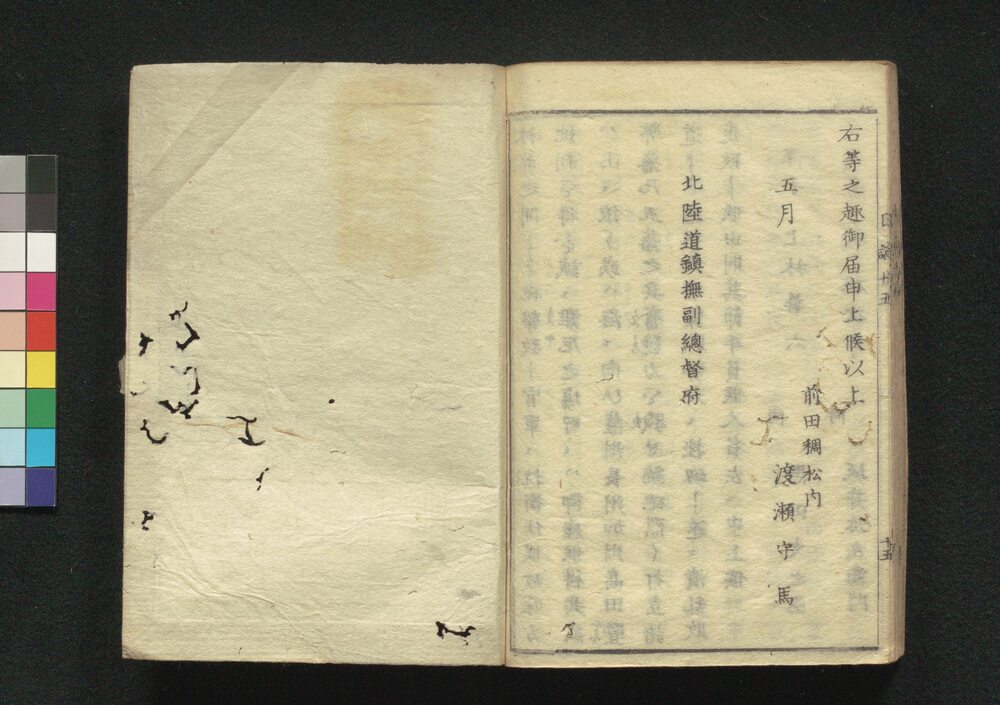 右等之趣御届申上候以上
前田稠松内
五月
渡瀬守馬
北陸道鎮撫副總督府
日誌廿五
十五